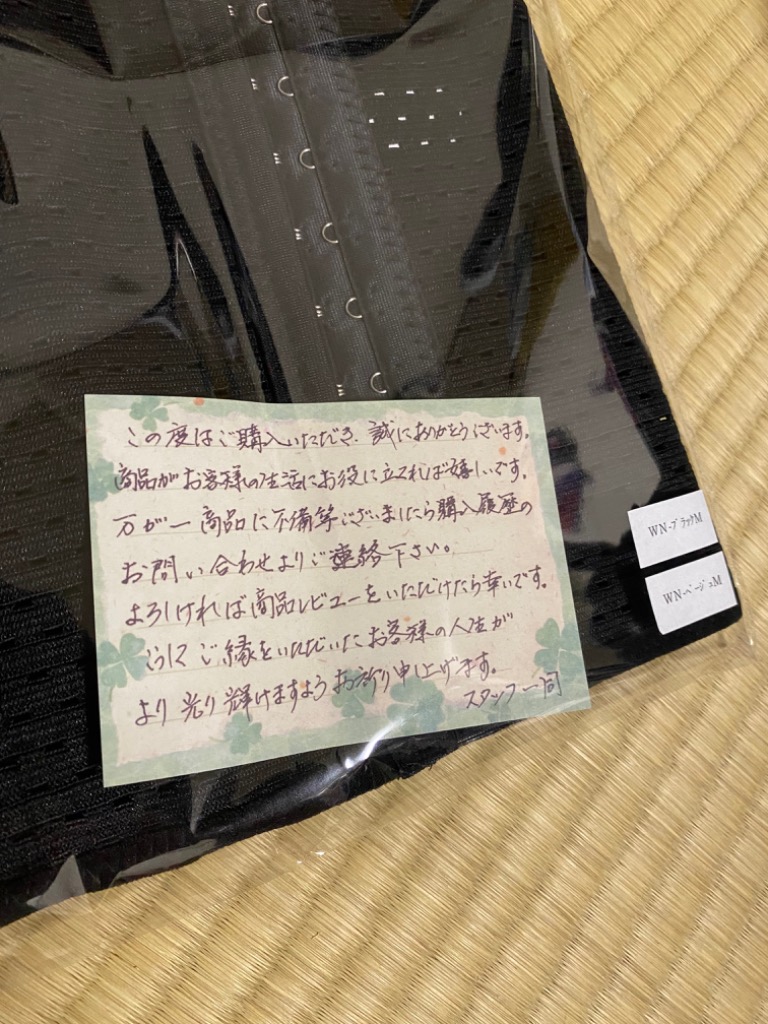 この度はご購入いただき、誠にありがとうございます。
商品がお客様の生活にお役に立てれば嬉しいです。
万が一商品に不備等ございましたら購入履歴の
お問い合わせよりご連絡下さい。
よろしければ商品レビューをいただけたら幸いです。
こうしてご縁をいただいたお客様の人生が
より光り輝けますようお祈り申上げます。
スタッフ一同
WN-ブラックM
WN-ベージュM